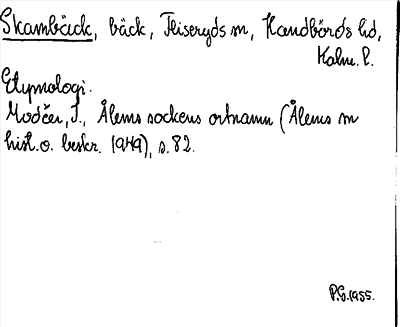 Skambäck, bäck, Fliseryds sn, Handbörds hd,
Kalm. l.
Etymologi.
Modéer, I., Ålems sockens ortnamn (Ålems sn
hist. o. beskr. 1949), s. 82.
P.G. 1955.